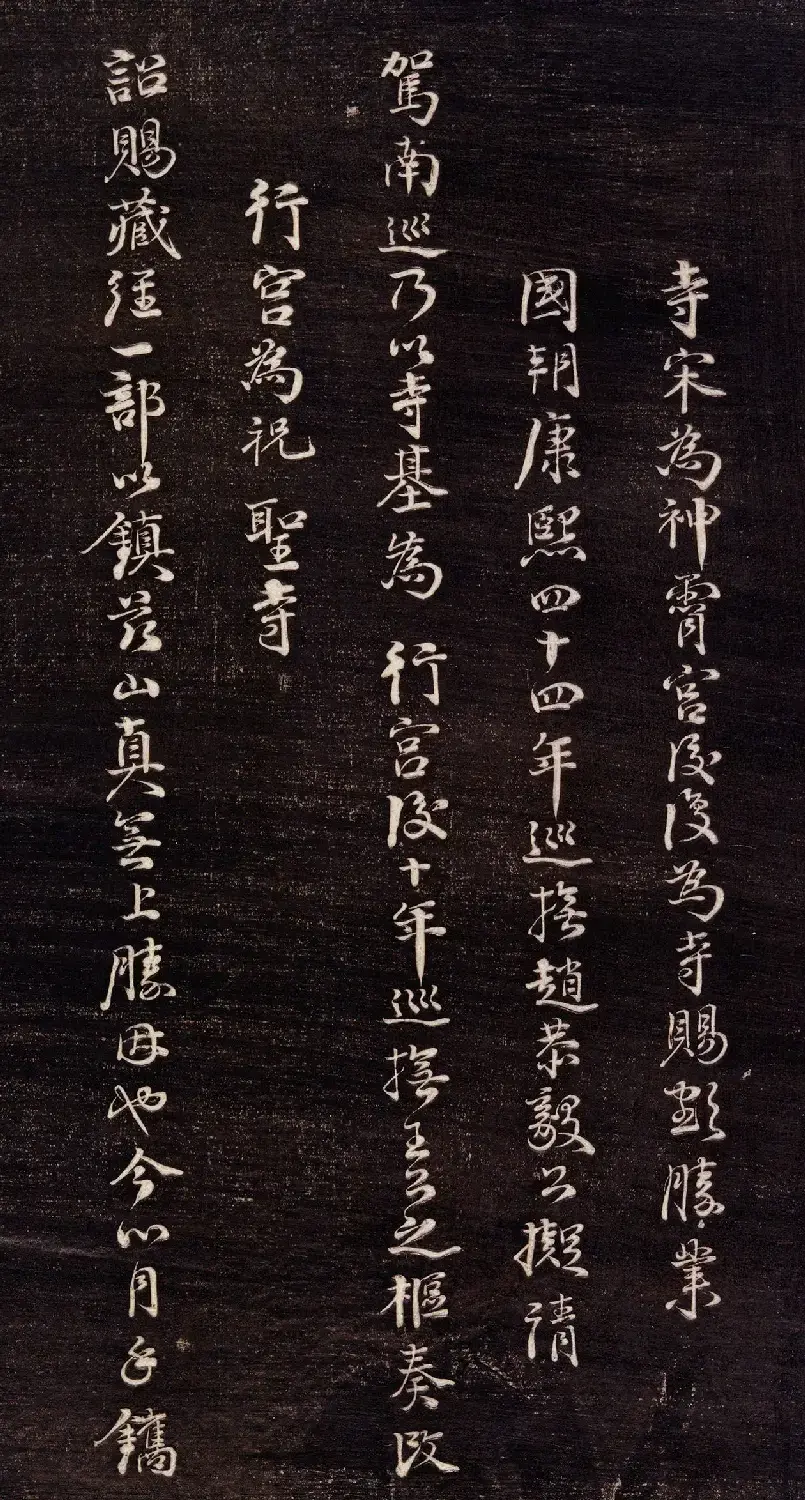 寺宋為神霄宮後復為寺賜額勝業
國朝康熙四十四年巡撫趙恭毅公擬請
駕南巡乃以寺基為行宮後十年巡撫王公之樞奏改
行宮為祝聖寺
詔賜藏經一部以鎮茲山真無上勝因也今心月手鐫